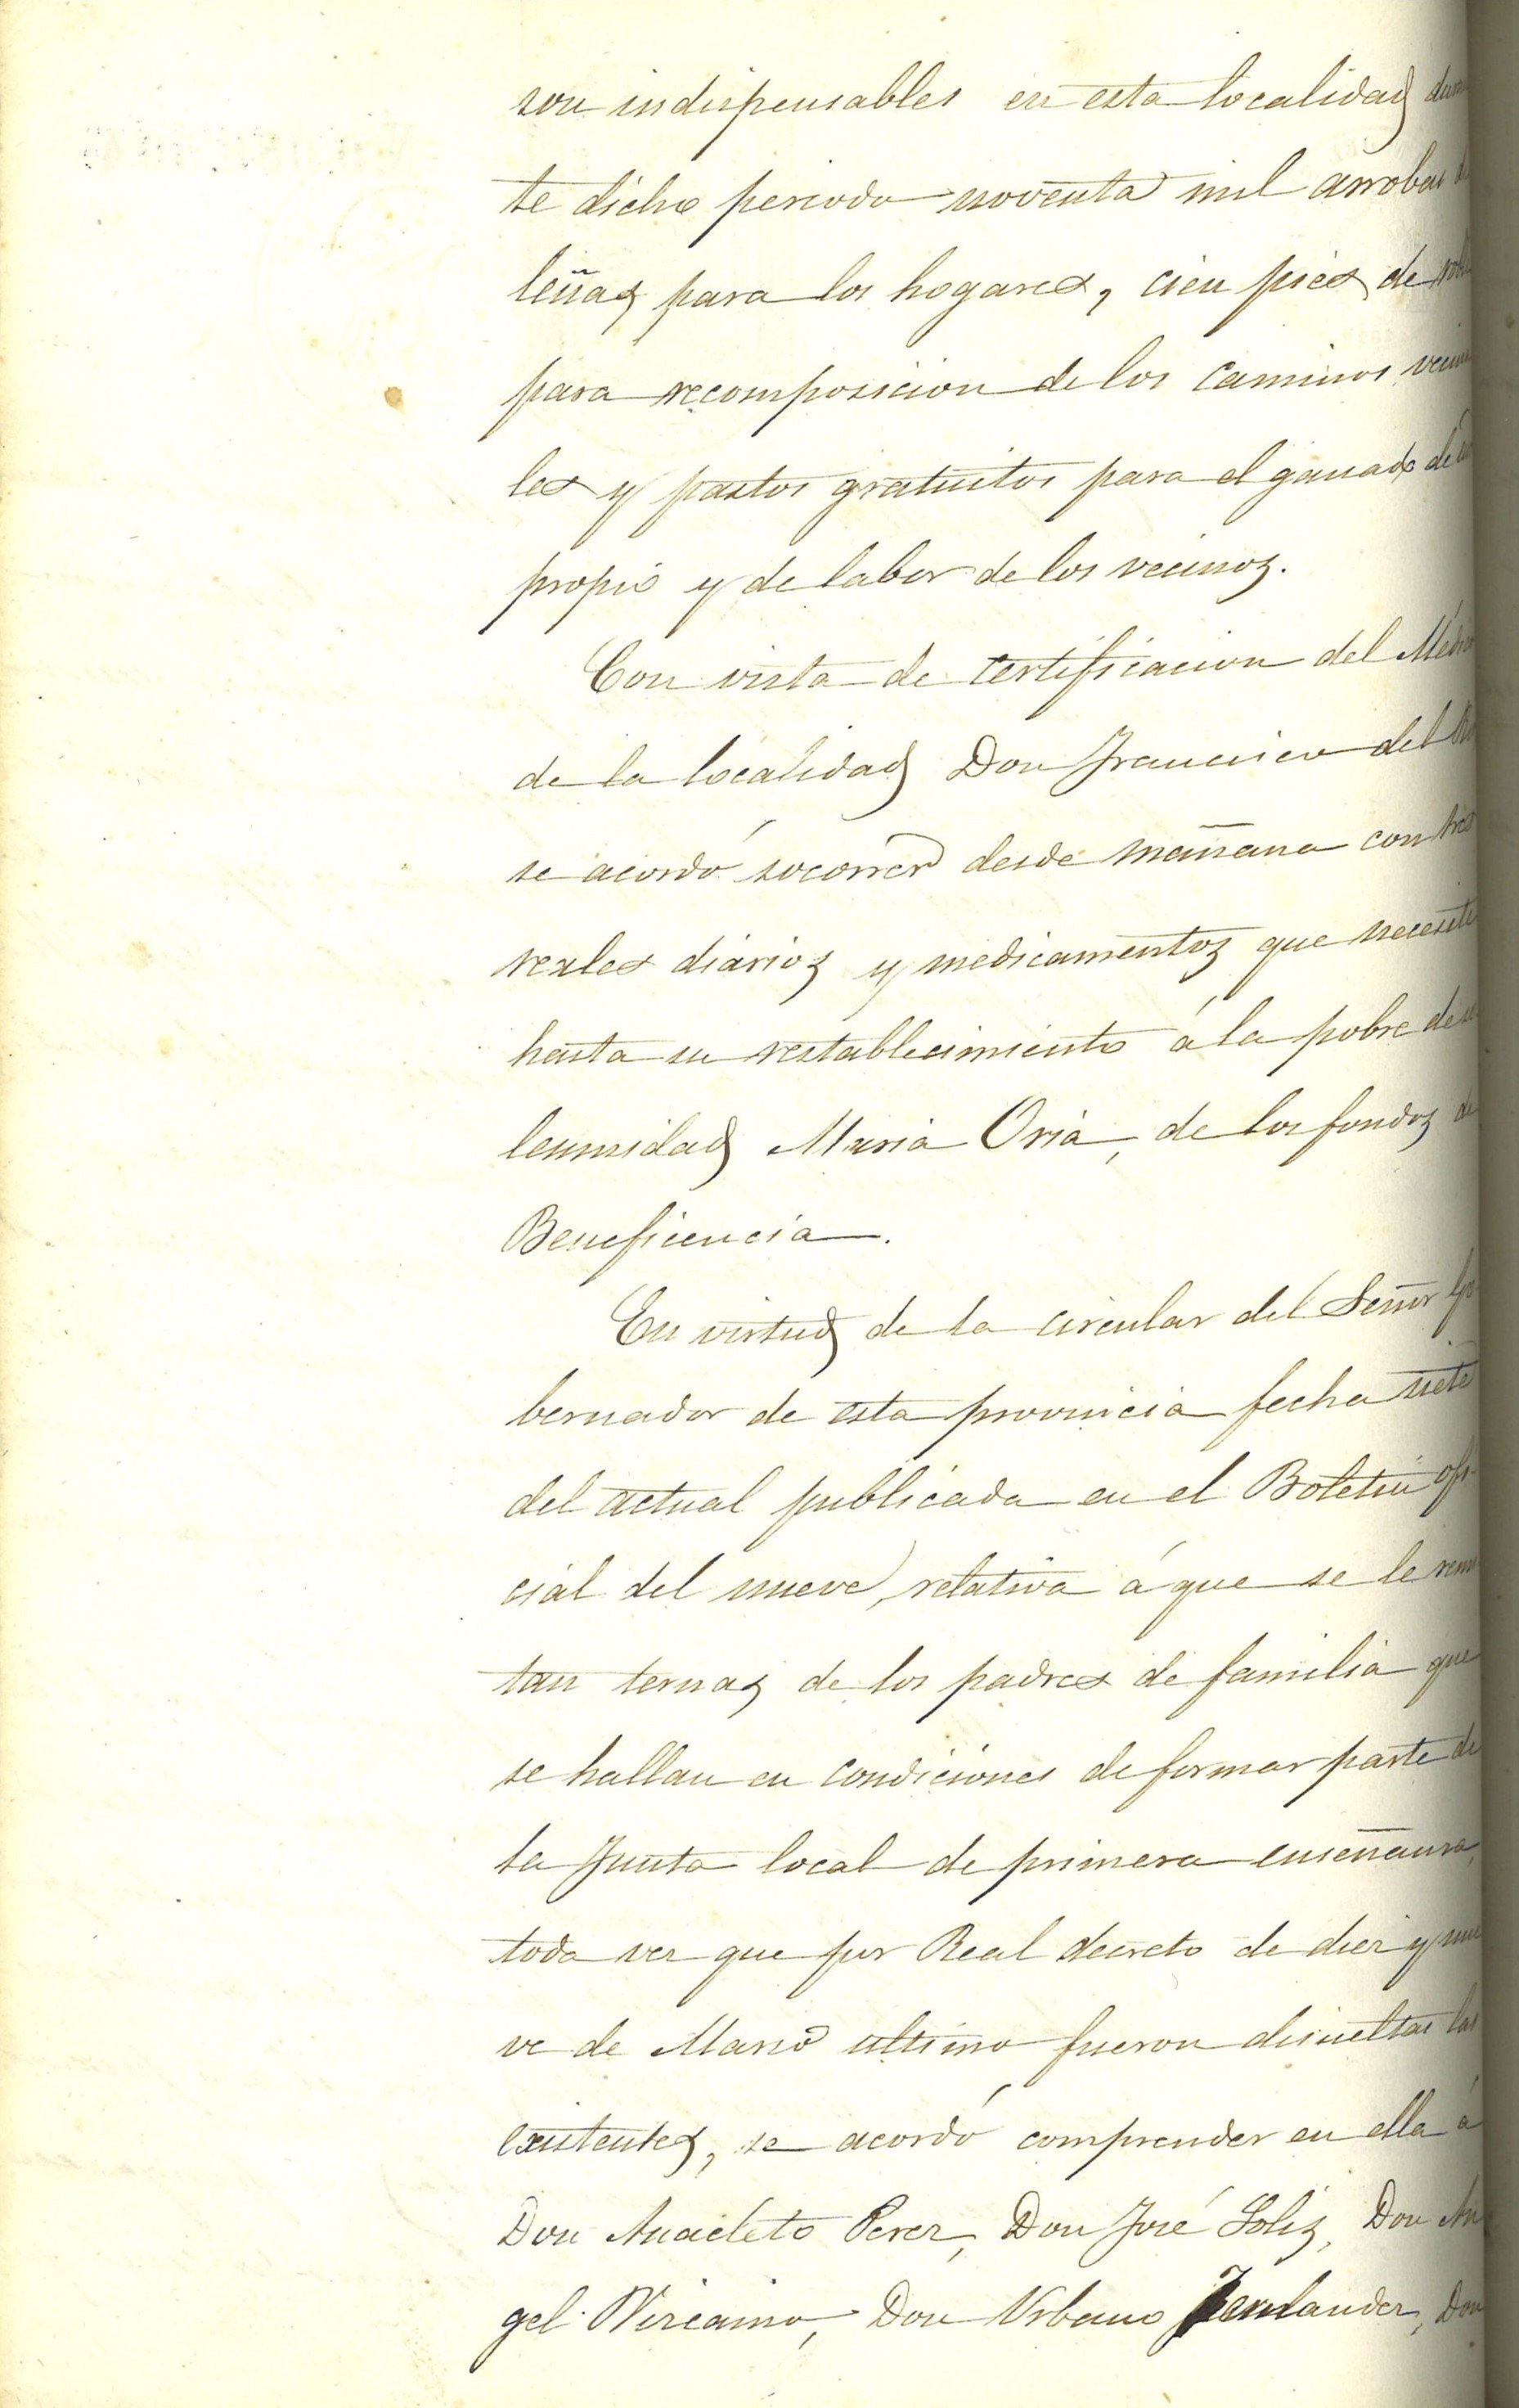 son indispensables en esta localidad duran
te dicho periodo noventa mil arrobas de
leñas para los hogares, cien piés de roble
para recomposicion de los caminos vecina
les y pastos gratuitos para el ganado de
propio y de labor de los vecinos.
Con vista de certificacion del Médico
de la localidad Don Francisco del
se acordó socorrer desde mañana con tres
reales diarios y medicamentos que necesite
hasta su restablecimiento á la pobre de so
lemnidad Maria Oria, de los fondos de
Beneficencia.
En virtud de la circular del Señor Go
bernador de esta provincia fecha siete
del actual publicada en el Boletin ofi-
cial del nueve, relativa á que se le remi
tan ternas de los padres de familia que
se hallan en condiciones de formar parte de
la Junta local de primera enseñanza,
toda vez que por Real decreto de diez y nue
ve de Marzo ultimo fueron disueltas las
existentes, se acordó comprender en ella á
Don Anacleto Perez, Don José Solis, Don An
gel Vizcaino, Don Urbano Fernandez, Don